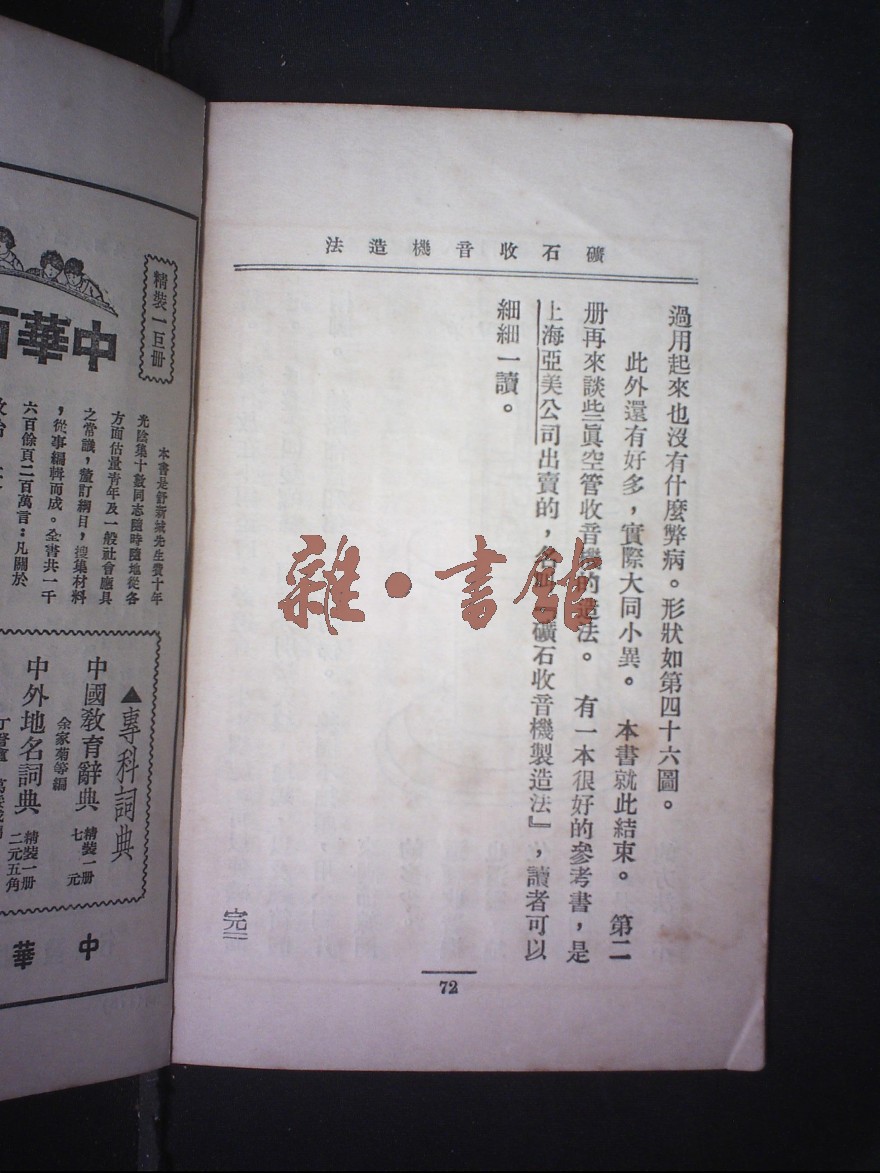 礦石收音機造法
過用起來也沒有什麼弊病。形狀如第四十六圖。
此外還有好多，實際大同小異。本書就此結束。第二
册再來談些眞空管收音機的造法。有一本很好的參考書，是
上海亞美公司出賣的，名『礦石收音機製造法』，讀者可以
細細一讀。
完
72
雜·書館
精裝一巨册
中華
本書是舒新城先生費十年
光陰集十數同志隨時隨地從各
方面估量靑年及一般社會應具
之常識，釐訂綱目，搜集材料
，從事編輯而成。全書共一千
六百餘頁二百萬言：凡關於
▲專科詞典
中國敎育辭典
余家菊等編
精裝一册
七元
中外地名詞典
精裝一册
二元五角
中華